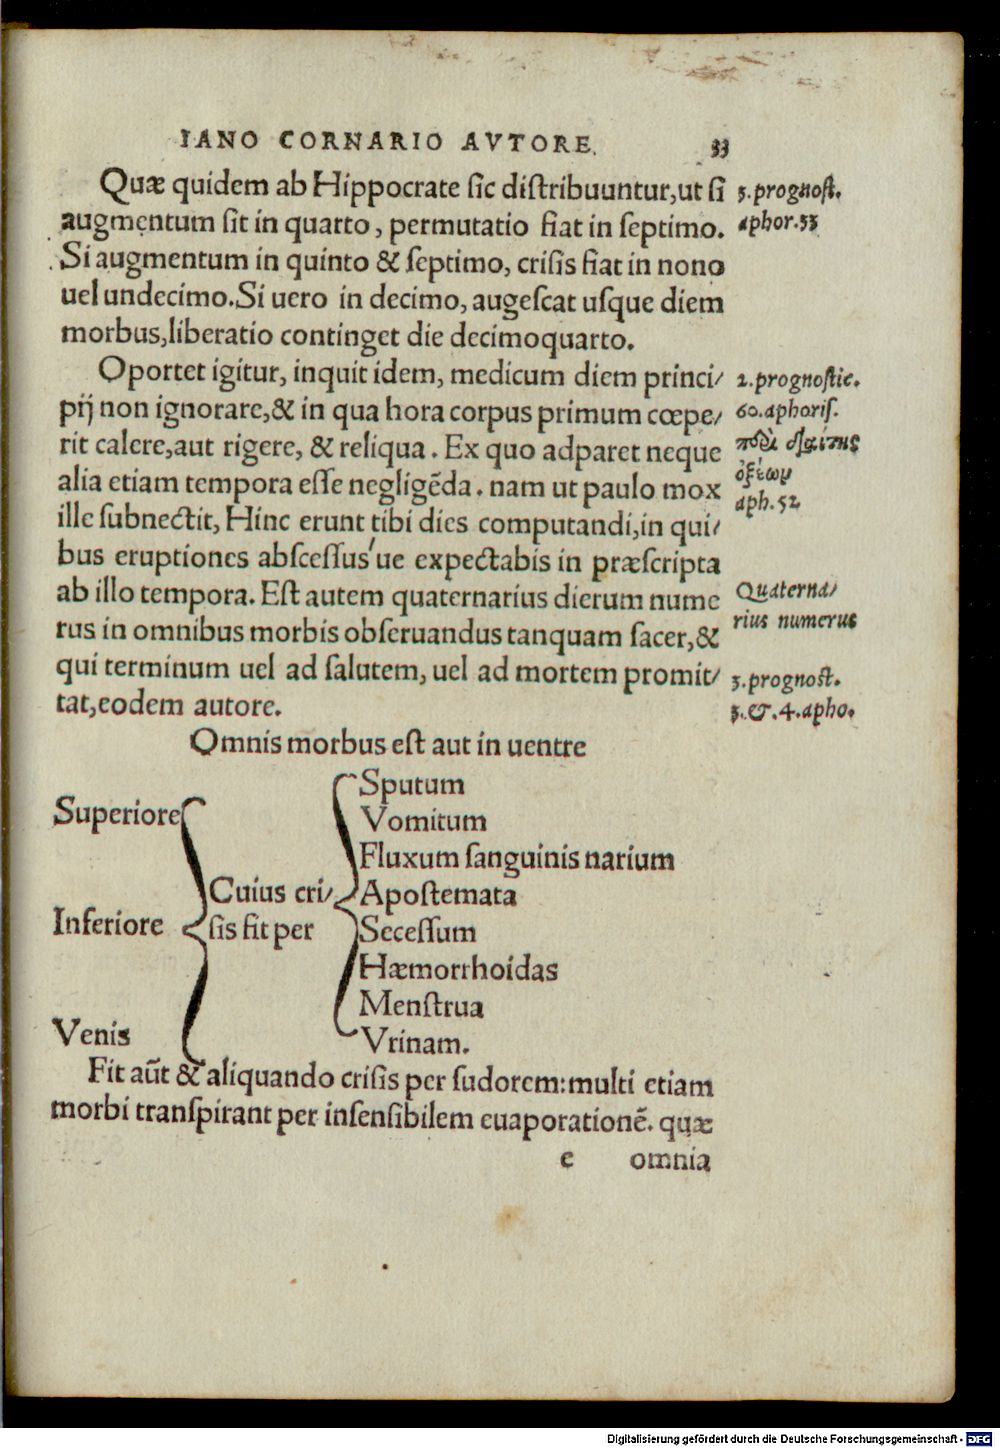 IANO CORNARIO AVTORE. 33
Quæ quidem ab Hippocrate sic distribuuntur, ut si
augmentum sit in quarto, permutatio fiat in septimo.
Si augmentum in quinto & septimo, crisis fiat in nono
uel undecimo. Si uero in decimo, augescat usque diem
morbus, liberatio continget die decimoquarto.
3. prognost.
aphor. 53
Oportet igitur, inquit idem, medicum diem princi/
pij non ignorare, & in qua hora corpus primum cœpe/
rit calere, aut rigere, & reliqua. Ex quo adparet neque
alia etiam tempora esse negligẽda. nam ut paulo mox
ille subnectit, Hinc erunt tibi dies computandi, in qui/
bus eruptiones abscessus'ue expectabis in præscripta
ab illo tempora. Est autem quaternarius dierum nume
rus in omnibus morbis obseruandus tanquam sacer, &
qui terminum uel ad salutem, uel ad mortem promit/
tat, eodem autore.
2. prognostic.
60. aphoris.
περὶ διαίτης
ὀξέων
aph. 52
Quaterna/
rius numerus
3. prognost.
3. & 4. apho.
Omnis morbus est aut in uentre
Superiore
Inferiore
Venis
Cuius cri/
sis fit per
Sputum
Vomitum
Fluxum sanguinis narium
Apostemata
Secessum
Hæmorrhoidas
Menstrua
Vrinam.
Fit aũt & aliquando crisis per sudorem: multi etiam
morbi transpirant per insensibilem euaporationẽ. quæ
e omnia
Digitalisierung gefördert durch die Deutsche Forschungsgemeinschaft - DFG